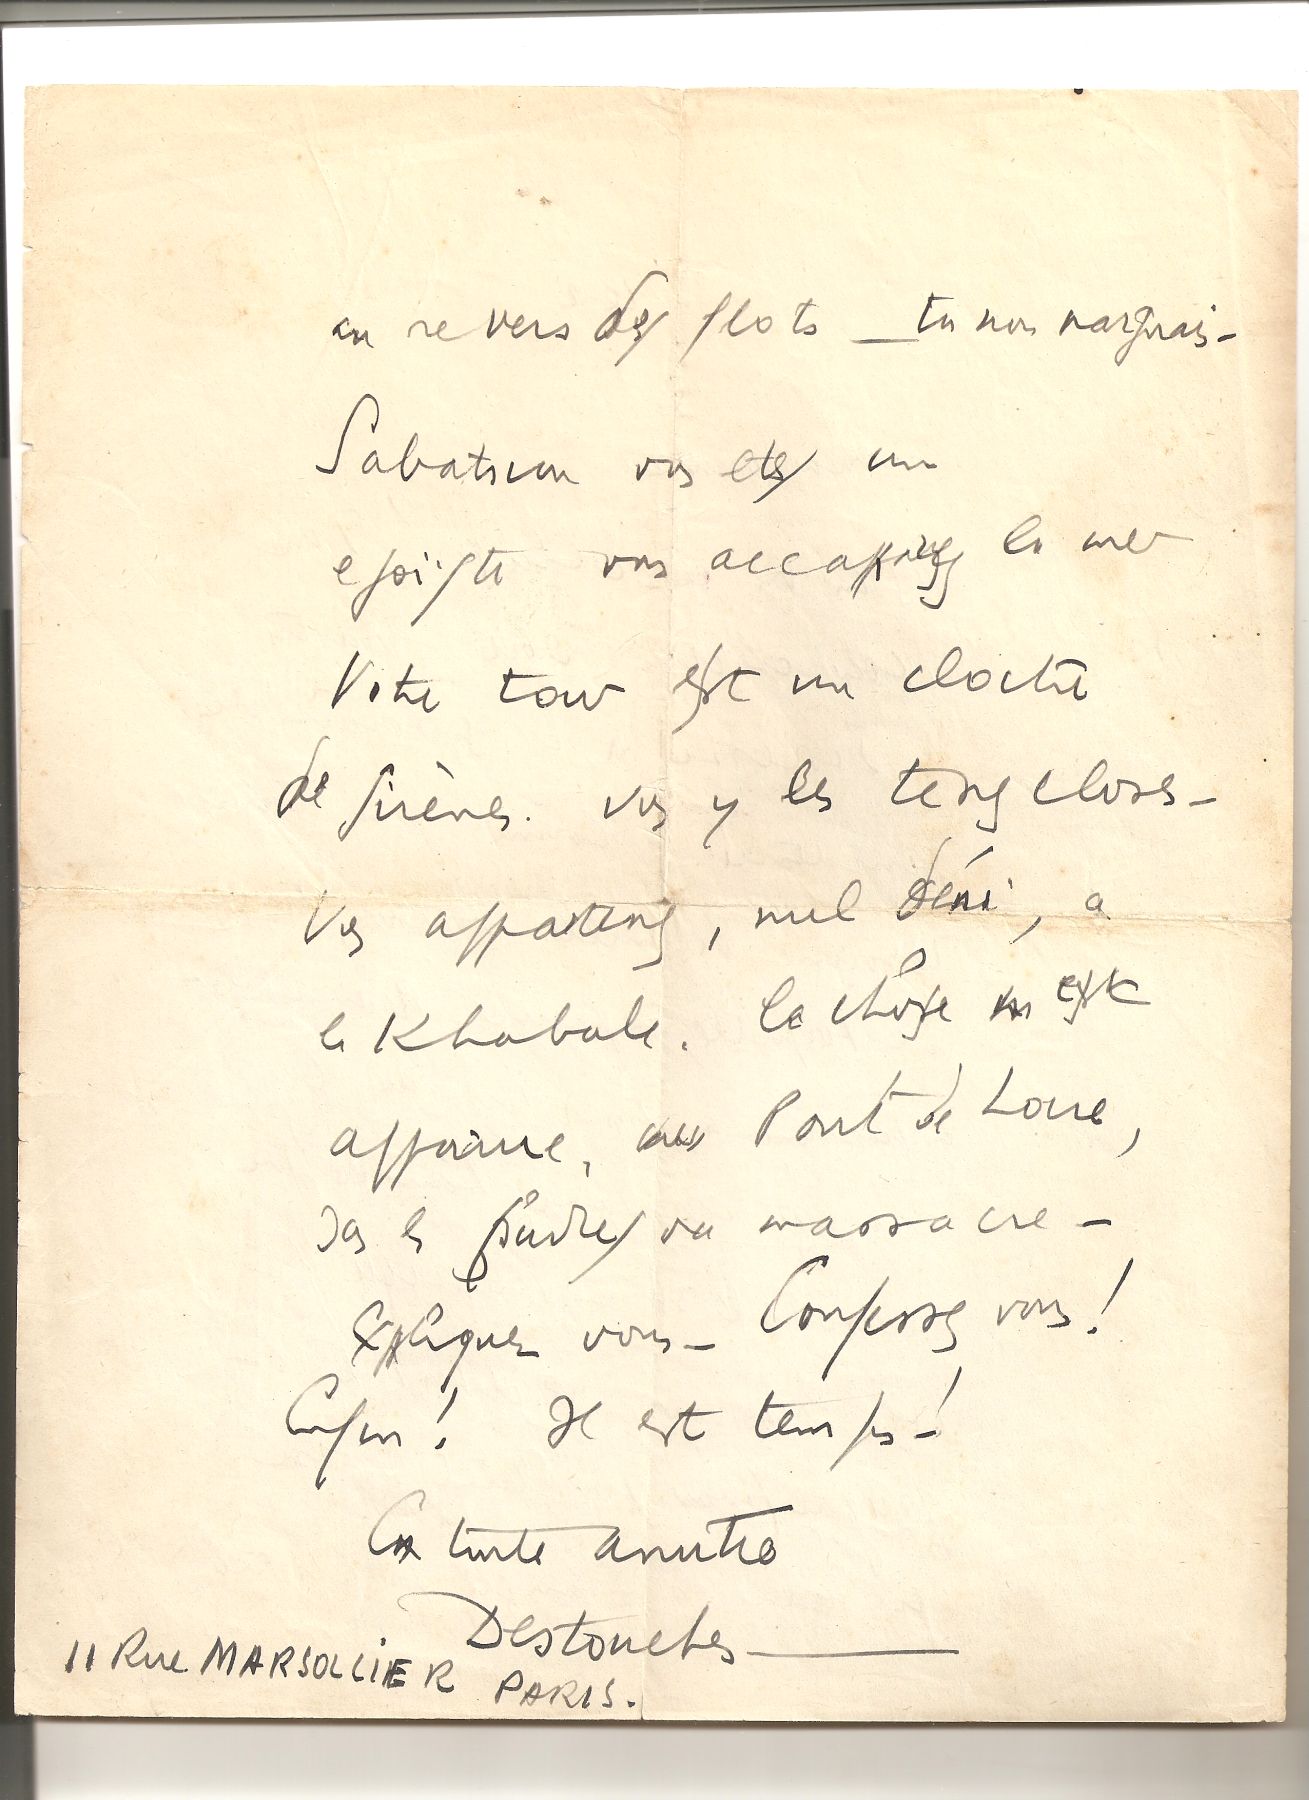 au revers des flots — tu nous narguais –
Sabatier vous etes un
egoiste vous accaparez la mer
Votre tour est un cloitre
de sirènes. vous y les tenez closes –
Vous appartenez, nul déni, a
la Khabale. la chose m est
apparue, Pont de Loire,
dans les du massacre –
Expliquez vous – Confessez vous !
Enfin ! Il est temps !
En toute
Destouches
11 Rue MARSOLLIER PARIS.